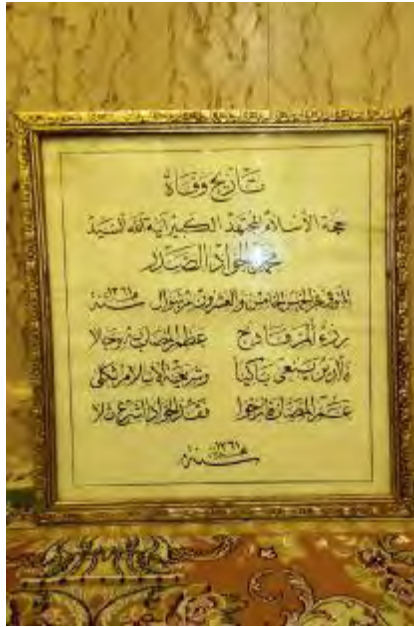 تأريخ وفاة
حجة الاسلام المجتهد الكبير آية الله السيد
محمد الجواد الصدر
المتوفى فجر الخميس الخامس والعشرون من شوال سنة ١٣٦١
رزء ألم فادح عظم المصاب به وجلا
فالدين ينعى باكيا وشريعة الاسلام ثكلى
عم المصاب فارخوا فقد الجواد الشرع
سنة ١٣٦١